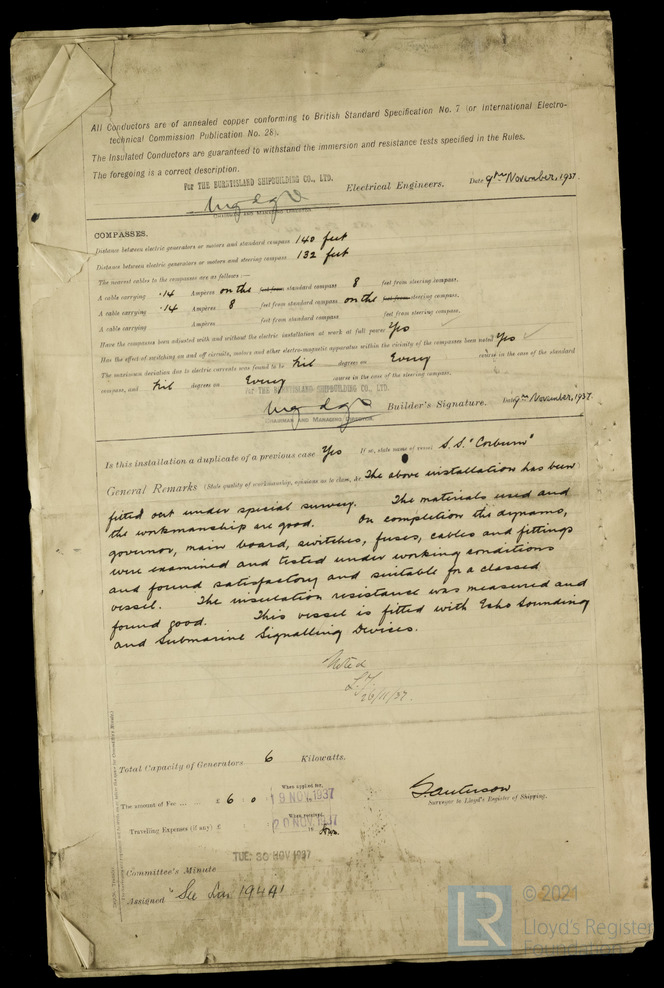 All Conductors are of annealed copper conforming to British Standard Specification No. 7 (or International Electro-
technical Commission Publication No. 28).
The Insulated Conductors are guaranteed to withstand the immersion and resistance tests specified in the Rules.
The foregoing is a correct description.
For THE BURNTISLAND SHIPBUILDING CO., LTD.
Electrical Engineers. Date 9th November, 1937
CHAIRMAN AND MANAGING DIRECTOR
COMPASSES.
Distance between electric generators or motors and standard compass 140 feet
Distance between electric generators or motors and steering compass 132 feet
The nearest cables to the compasses are as follows:—
A cable carrying .14 Ampères on the feet from standard compass 8 feet from steering compass.
A cable carrying .14 Ampères 8 feet from standard compass on the feet from steering compass.
A cable carrying Ampères feet from standard compass feet from steering compass.
Have the compasses been adjusted with and without the electric installation at work at full power Yes
Has the effect of switching on and off circuits, motors and other electro-magnetic apparatus within the vicinity of the compasses been noted Yes
The maximum deviation due to electric currents was found to be Nil degrees on Every course in the case of the standard
compass, and Nil degrees on Every course in the case of the steering compass.
For THE BURNTISLAND SHIPBUILDING CO., LTD.
Builder's Signature. Date 9th November, 1937
CHAIRMAN AND MANAGING DIRECTOR.
Is this installation a duplicate of a previous case Yes If so, state name of vessel S.S. "Corburn"
General Remarks (State quality of workmanship, opinions as to class, &c. The above installation has been
fitted out under special survey. The materials used and
the workmanship are good. On completion the dynamo,
governor, main board, switches, fuses, cables and fittings
were examined and tested under working conditions
and found satisfactory and suitable for a classed
vessel. The insulation resistance was measured and
found good. This vessel is fitted with Echo Sounding
and Submarine Signalling Devices.
Noted
26/11/37.
Total Capacity of Generators 6 Kilowatts.
The amount of Fee ... £ 6 0 When applied for, 19 NOV. 1937
Surveyor to Lloyd's Register of Shipping.
Travelling Expenses (if any) £ When received,
TUE. 30 NOV 1937
Committee's Minute
Assigned
© 2021
LR
Lloyd's Register
Foundation